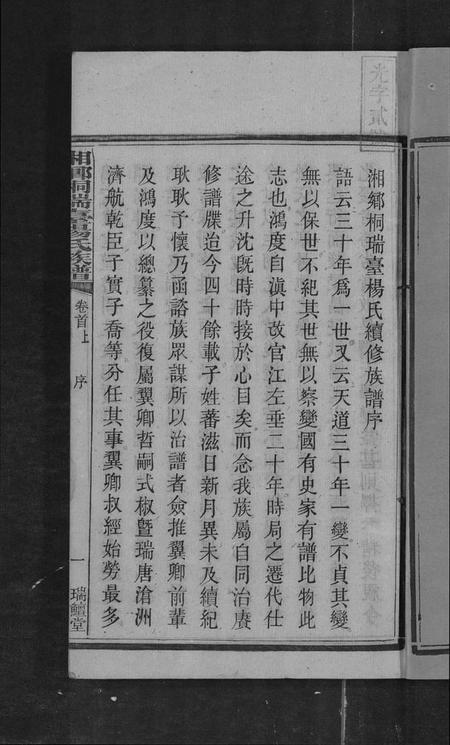 湘鄉桐瑞臺楊氏續修族譜序
語云三十年爲一世又云天道三十年一變不貞其變
無以保世不紀其世無以察變國有史家有譜比物此
志也鴻度自滇中改官江左垂二十年時局之遷代仕
途之升沈旣時時接於心目矣而念我族屬自同治賡
修譜牒迨今四十餘載子姓蕃滋日新月異未及續紀
耿耿予懷乃函諮族眾謀所以治譜者僉推翼卿前輩
及鴻度以總纂之役復屬翼卿哲嗣式椒曁瑞唐滄洲
濟航乾臣子實子喬等分任其事翼卿叔經始勞最多
湘鄉桐瑞臺楊氏族譜
卷首上
序
一
瑞鱣堂